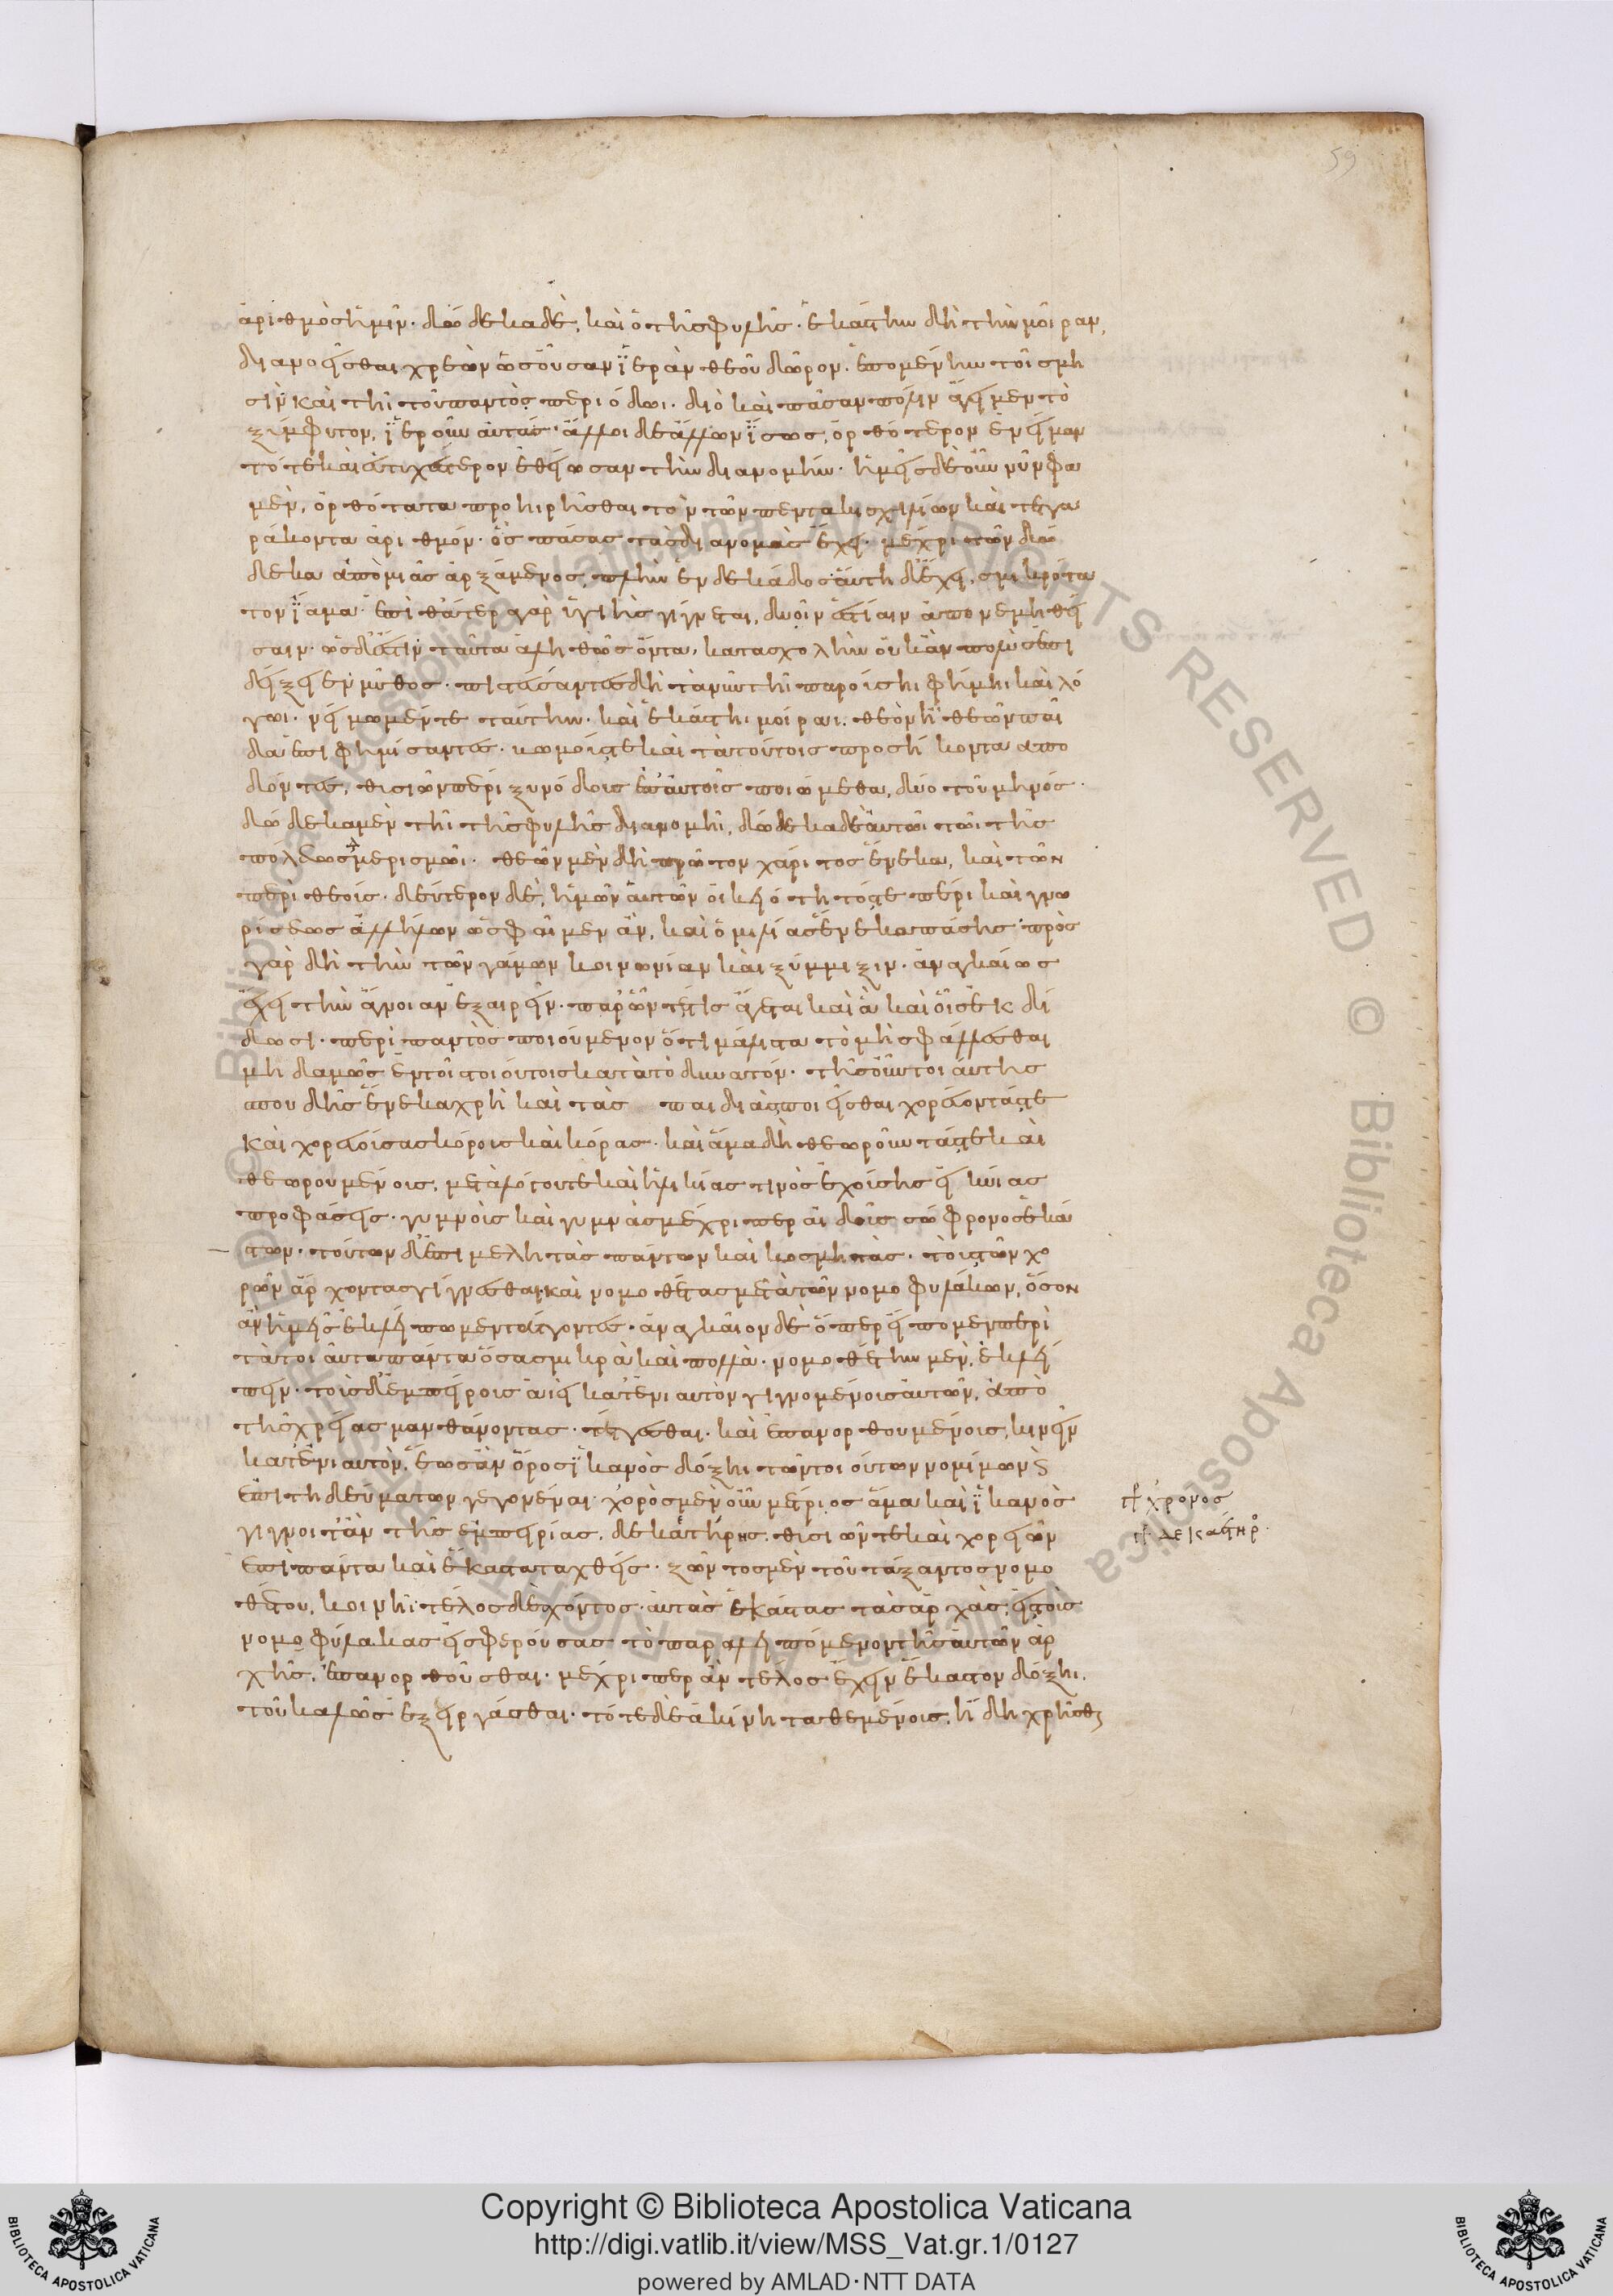 59
ἀριθμὸς ἡμῖν. δώδεκα δὲ, καὶ ὁ τῆς φυλῆς. ἑκάστην δὴ τὴν μοῖραν,
διανοεῖσθαι χρεὼν ὡς οὖσαν ἱερὰν θεοῦ δῶρον. ἑπομένην τοῖς μη
σὶν καὶ τῆι τοῦ παντὸς περιόδωι. διὸ καὶ πᾶσαν πόλιν ἄγει μὲν τὸ
ξύμφυτον, ἱεροῦν αὐτάς. ἄλλοι δὲ ἄλλων ἴσως, ὀρθότερον ἐνείμαν
τό τε καὶ εὐτυχέστερον ἐθείωσαν τὴν διανομήν. ἡμεῖς δὲ οὖν νῦν φα
μὲν, ὀρθότατα προηιρῆσθαι τὸν τῶν πεντακισχιλίων καὶ τετταρ
ράκοντα ἀριθμόν. ὃς πάσας τὰς διανομὰς ἔχει. μέχρι τῶν δώ
δεκα ἀπὸ μιᾶς ἀρξάμενος, πλὴν ἑνδεκάδος αὕτη δ' ἔχει. σμικρότα
τον ἴαμα. ἐπὶ θάτερα γὰρ ὑγιὴς γίγνεται, δυοῖν ἑστίαιν ἀπονεμηθεί
σαιν. ὡς δ' ἐστὶν ταῦτα ἀληθῶς ὄντα, κατὰ σχολὴν οὐκ ἂν πολὺς ἐπι
δείξειεν μῦθος. πιστεύσαντες δὴ τὰ νῦν τῆι παρούσηι φήμηι καὶ λό
γωι. νείμωμέν τε ταύτην. καὶ ἑκάστηι μοίραι. θεὸν ἢ θεῶν παῖ
δα ἐπιφημίσαντες. βωμούς τε καὶ τὰ τούτοις προσήκοντα ἀπο
δόντες, θυσιῶν πέρι ξυνόδους ἐπ' αὐτοῖς ποιώμεθα, δύο τοῦ μηνός.
δώδεκα μὲν τῆι τῆς φυλῆς διανομῆι, δώδεκα δὲ αὐτῶι τῶι τῆς
πόλεως μερισμῶι. θεῶν μὲν δὴ πρῶτον χάριτος ἕνεκα, καὶ τῶν
περὶ θεούς. δεύτερον δὲ, ἡμῶν αὐτῶν οἰκειότητός τε πέρι καὶ γνω
ρίσεως ἀλλήλων ὡς φαῖμεν ἂν, καὶ ὁμιλίας ἕνεκα πάσης. πρὸς
γὰρ δὴ τὴν τῶν γάμων κοινωνίαν καὶ ξύμμιξιν. ἀναγκαίως
ἔχει τὴν ἄγνοιαν ἐξαιρεῖν. παρ' ὧν τέ τις ἄγεται καὶ ἃ καὶ οἷς ἐκδί
δωσι. περὶ παντὸς ποιούμενον ὅτι μάλιστα τὸ μὴ σφάλλεσθαι
μηδαμῶς ἐν τοῖς τοιούτοις κατὰ τὸ δυνατόν. τῆς οὖν τοιαύτης
σπουδῆς ἕνεκα χρὴ καὶ τὰς παιδιὰς ποιεῖσθαι χορεύοντάς τε
καὶ χορευούσας κόροις καὶ κόρας. καὶ ἅμα δὴ θεωροῦντάς τε καὶ
θεωρουμένοις, μετὰ λόγου τε καὶ ἡλικίας τινὸς ἐχούσης εἰκυίας
προφάσεις. γυμνοὺς καὶ γυμνὰς μέχρι περ αἰδοῦς σώφρονος ἑκά
στων. τούτων δ' ἐπιμελητὰς πάντων καὶ κοσμητὰς. τοὺς τῶν χο
ρῶν ἄρχοντας γίγνεσθαι καὶ νομοθέτας μετὰ τῶν νομοφυλάκων, ὅσον
ἂν ἡμεῖς ἐκλείπωμεν τάττοντες. ἀναγκαῖον δὲ ὅπερ εἴπομεν περὶ
τὰ τοιαῦτα πάντα ὅσα σμικρὰ καὶ πολλὰ. νομοθέτην μὲν, ἐκλεί
πειν. τοὺς δ' ἐμπείρους ἀεὶ κατ' ἐνιαυτὸν γιγνομένοις αὐτῶν, ἀπὸ
τῆς χρείας μανθάνοντας. τάττεσθαι. καὶ ἐπανορθουμένοις, κινεῖν
κατ' ἐνιαυτὸν, ἕως ἂν ὅρος ἱκανὸς δόξηι τῶν τοιούτων νομίμων καὶ
ἐπιτηδευμάτων γεγονέναι. χορὸς μὲν οὖν μέτριος ἅμα καὶ ἱκανὸς
γίγνοιτ' ἂν τῆς ἐμπειρίας. δεκαέτηρης. θυσιῶν τε καὶ χορειῶν
ἐπὶ πάντα καὶ ἕκαστα ταχθεὶς. ζῶντος μὲν τοῦ τάξαντος νομο
θέτου, κοινῆι. τέλος δὲ ἔχοντος. αὐτὰς ἑκάστας τὰς ἀρχὰς, εἰς τοὺς
νομοφύλακας εἰσφερούσας τὸ παραλειπόμενον τῆς αὐτῶν ἀρ
χῆς, ἐπανορθοῦσθαι. μέχρι περ ἂν τέλος ἔχειν ἕκαστον δόξηι.
τοῦ καλῶς ἐξειργάσθαι. τότε δὲ ἀκίνητα θεμένοις, ἤδη χρῆσθαι
χρόνος
δεκαετηρ
Copyright © Biblioteca Apostolica Vaticana
http://digi.vatlib.it/view/MSS_Vat.gr.1/0127
powered by AMLAD·NTT DATA
BIBLIOTECA APOSTOLICA VATICANA
BIBLIOTECA APOSTOLICA VATICANA